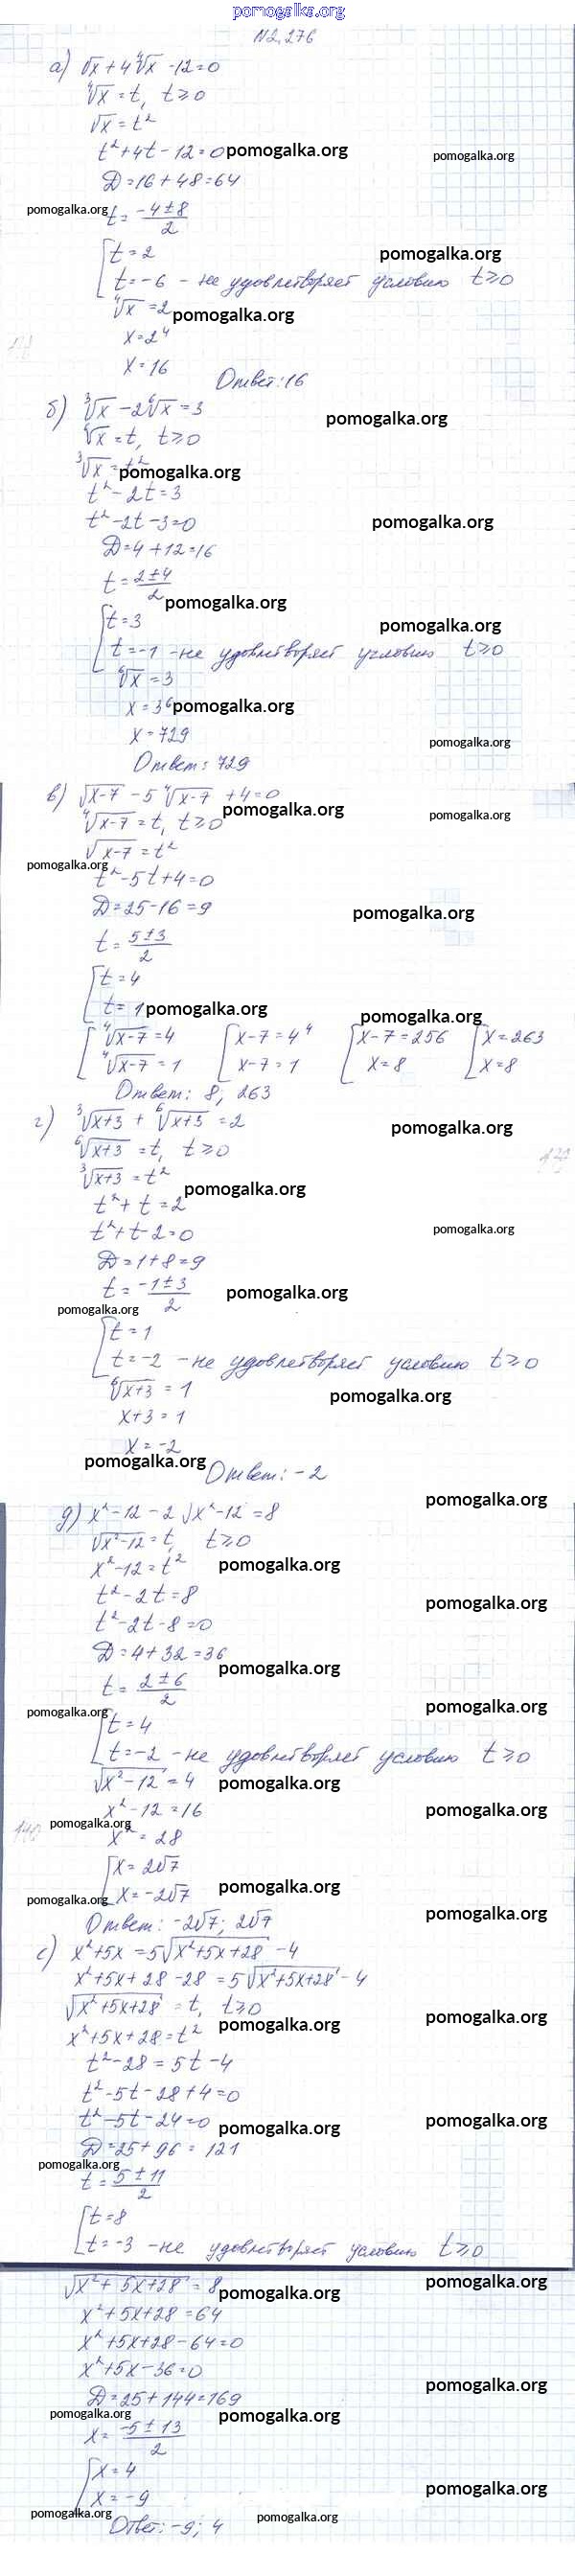 pomogalka.org
N2.276
а) √x + 4⁴√x - 12 = 0
⁴√x = t, t ≥ 0
√x = t²
t² + 4t - 12 = 0 pomogalka.org pomogalka.org
D = 16 + 48 = 64
pomogalka.org t = (-4 ± 8)/2
[t = 2 pomogalka.org
[t = -6 - не удовлетворяет условию t ≥ 0
⁴√x = 2 pomogalka.org
x = 2⁴
x = 16
Ответ: 16
б) ³√x - 2⁶√x = 3 pomogalka.org
⁶√x = t, t ≥ 0
³√x = t² pomogalka.org
t² - 2t = 3
t² - 2t - 3 = 0 pomogalka.org
D = 4 + 12 = 16
t = (2 ± 4)/2 pomogalka.org
[t = 3 pomogalka.org
[t = -1 - не удовлетворяет условию t ≥ 0
⁶√x = 3
x = 3⁶ pomogalka.org
x = 729 pomogalka.org
Ответ: 729
в) √x-7 - 5 ⁴√x-7 + 4 = 0 pomogalka.org
⁴√x-7 = t, t ≥ 0 pomogalka.org
√x-7 = t²
pomogalka.org
t² - 5t + 4 = 0
D = 25 - 16 = 9 pomogalka.org
t = (5 ± 3)/2
[t = 4
[t = 1 pomogalka.org pomogalka.org
[⁴√x-7 = 4 [x-7 = 4⁴ [x-7 = 256 [x = 263
[⁴√x-7 = 1 [x-7 = 1 [x = 8 [x = 8
Ответ: 8, 263
г) ³√x+3 + ⁶√x+3 = 2 pomogalka.org
⁶√x+3 = t, t ≥ 0
³√x+3 = t² pomogalka.org
t² + t = 2
t² + t - 2 = 0 pomogalka.org
D = 1 + 8 = 9
t = (-1 ± 3)/2 pomogalka.org
pomogalka.org
[t = 1
[t = -2 - не удовлетворяет условию t ≥ 0
⁶√x+3 = 1 pomogalka.org
x+3 = 1
x = -2
pomogalka.org Ответ: -2
pomogalka.org
д) x² - 12 - 2√x²-12 = 8
√x²-12 = t, t ≥ 0
x² - 12 = t² pomogalka.org
t² - 2t = 8 pomogalka.org
t² - 2t - 8 = 0
D = 4 + 32 = 36 pomogalka.org
t = (2 ± 6)/2 pomogalka.org
pomogalka.org
[t = 4
[t = -2 - не удовлетворяет условию t ≥ 0
√x²-12 = 4 pomogalka.org
x² - 12 = 16 pomogalka.org
pomogalka.org
x² = 28
[x = 2√7 pomogalka.org
[x = -2√7 pomogalka.org
pomogalka.org
Ответ: -2√7; 2√7
е) x²+5x = 5√x²+5x+28 - 4
x²+5x+28-28 = 5√x²+5x+28 - 4
√x²+5x+28 = t, t ≥ 0
x²+5x+28 = t² pomogalka.org pomogalka.org
t² - 28 = 5t - 4
t² - 5t - 28 + 4 = 0
t² - 5t - 24 = 0 pomogalka.org pomogalka.org
D = 25 + 96 = 121
pomogalka.org
t = (5 ± 11)/2
[t = 8
[t = -3 - не удовлетворяет условию t ≥ 0
√x²+5x+28 = 8 pomogalka.org pomogalka.org
x²+5x+28 = 64
x²+5x+28-64 = 0
x²+5x-36 = 0
D = 25+144 = 169 pomogalka.org
pomogalka.org pomogalka.org
x = (-5 ± 13)/2
[x = 4
[x = -9 pomogalka.org
pomogalka.org pomogalka.org
Ответ: -9; 4